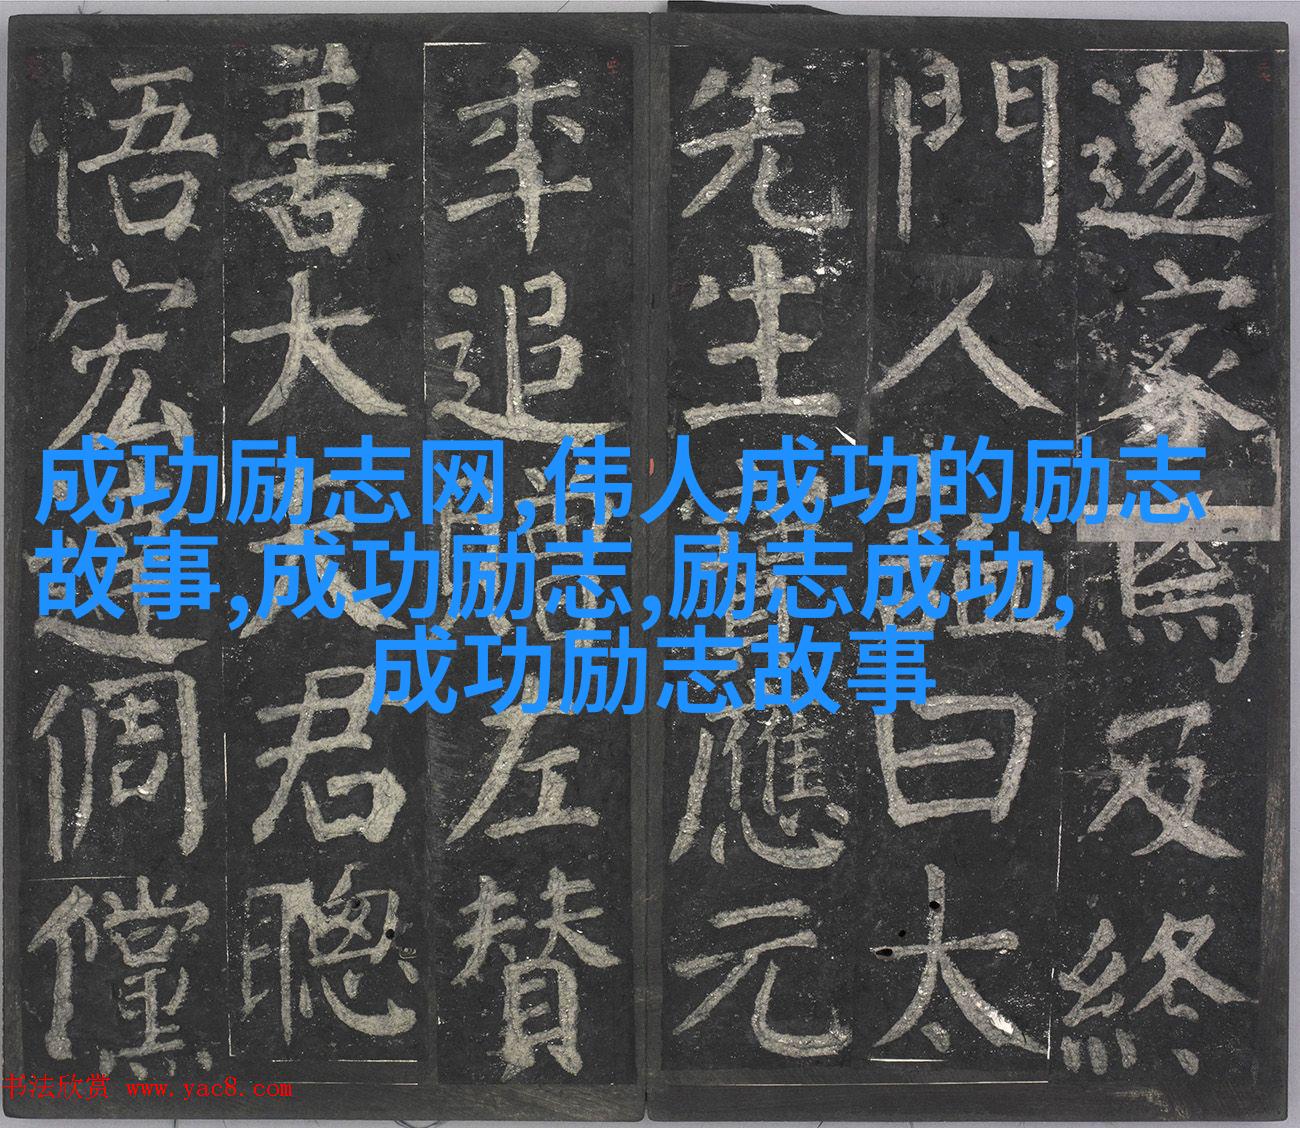 遂家焉及終
門人曰太
先生應元
年追贈左贊
善大夫君聰
悟宏達倜儻
成功励志网,伟人成功的励志
故事,成功励志,励志成功,
成功励志故事
书法欣赏 www.yac8.com